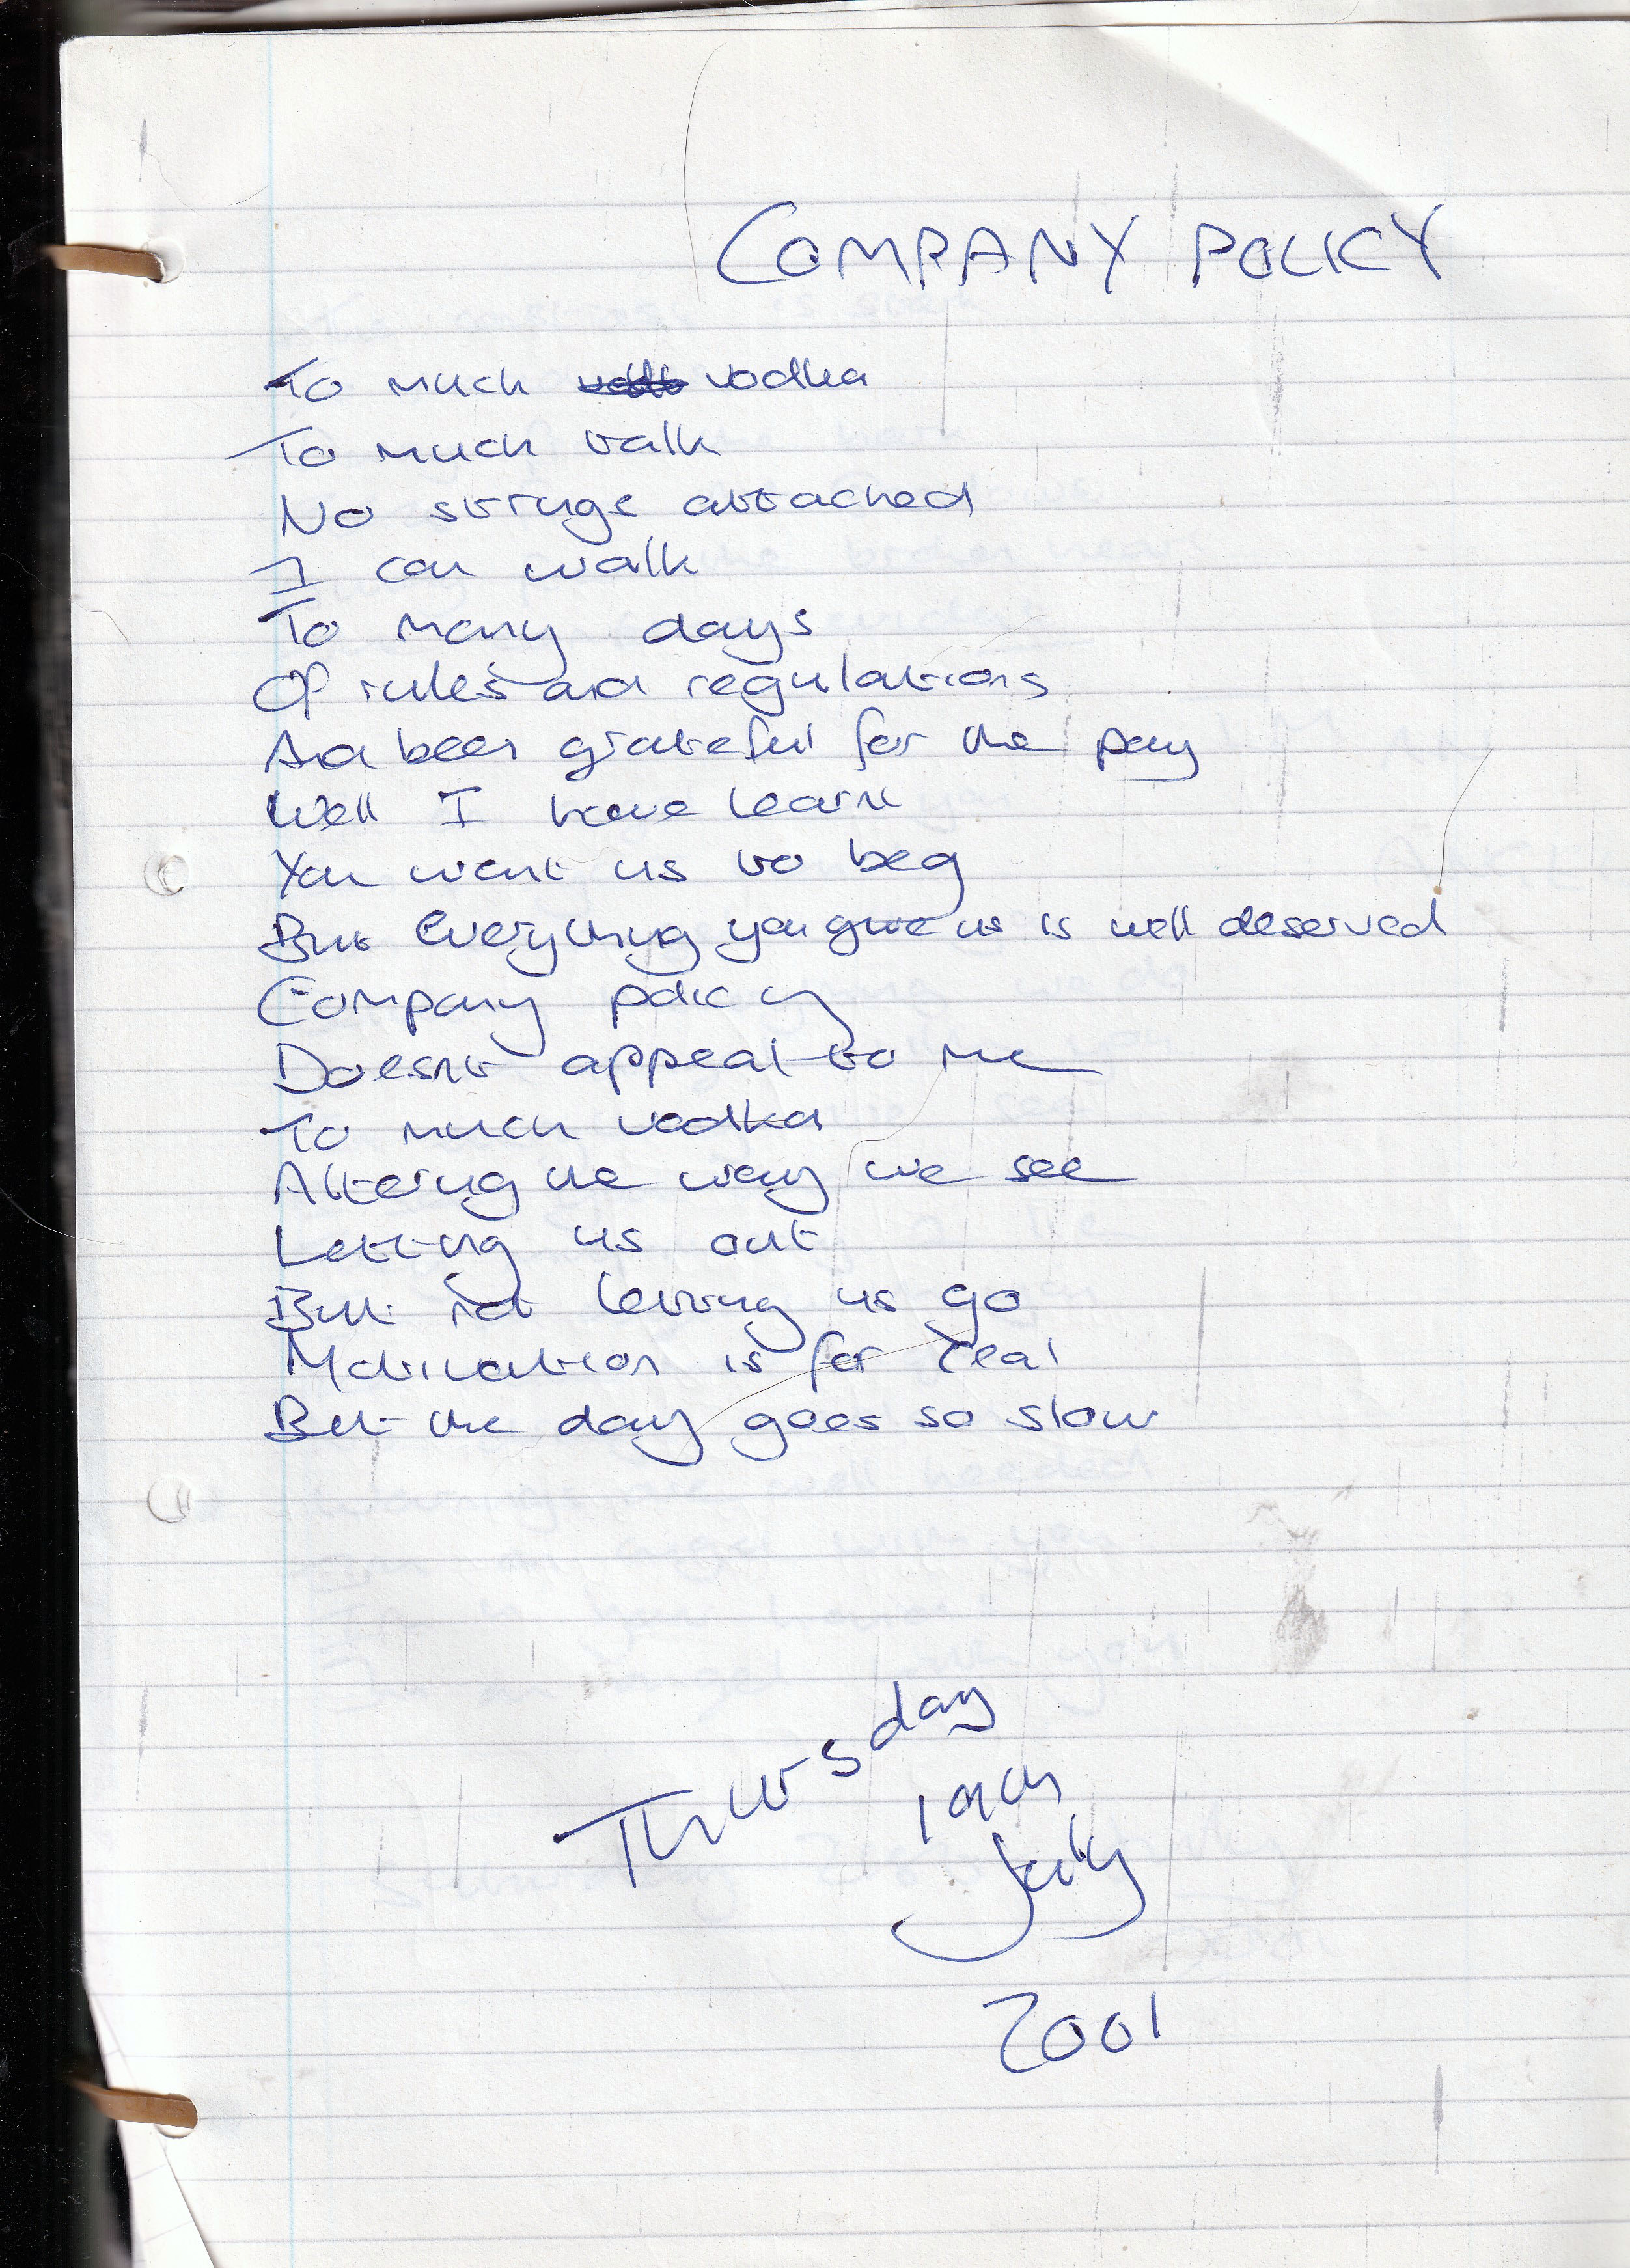 COMPANY POLICY
To much vodka
To much talk
No strings attached
I can walk
To many days
Of rules and regulations
And been grateful for the pay
Well I have learnt
You want us to beg
But Everything you give us is well deserved
Company policy
Doesnt appeal to me
To much vodka
Altering the way we see
Letting us out
But not letting us go
Motivation is for real
But the day goes so slow
Thursday
19th
July
2001